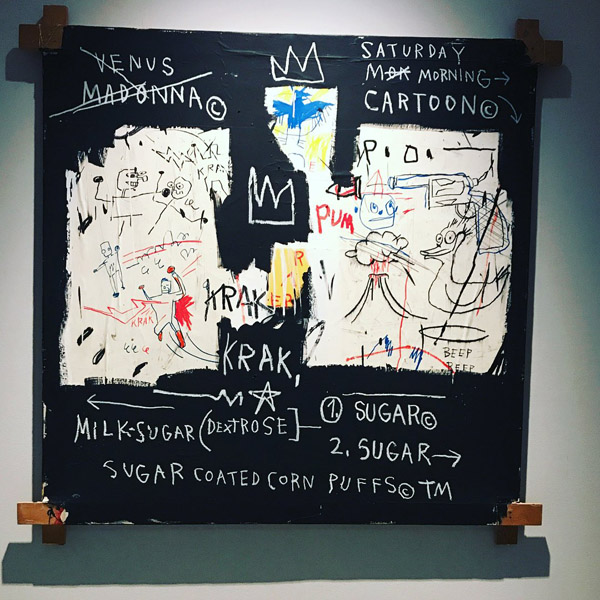 VENUS
MADONNA©
SATURDAY
MORNING→
CARTOON©
KRAK
P.O.
PUM
R
KRAK
KRAK
KRAK,
BEEP
BEEP
MILK-SUGAR (DEXTROSE]
1. SUGAR©
2. SUGAR→
SUGAR COATED CORN PUFFS© TM